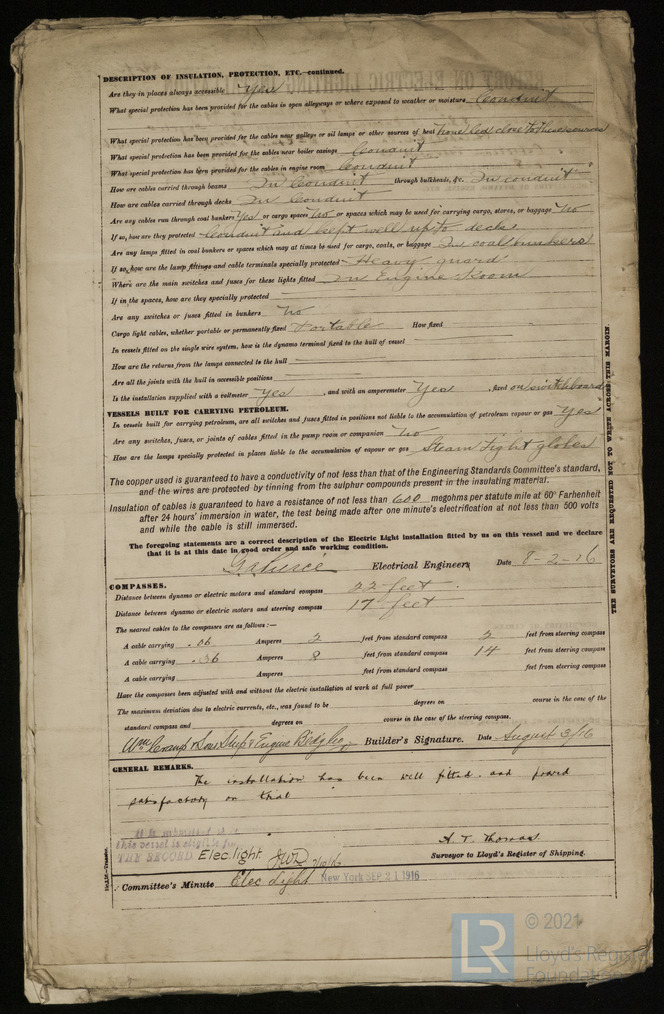 DESCRIPTION OF INSULATION, PROTECTION, ETC.—continued.
Are they in places always accessible Yes
What special protection has been provided for the cables in open alleyways or where exposed to weather or moisture Conduit
What special protection has been provided for the cables near galleys or oil lamps or other sources of heat None led close to these sources
What special protection has been provided for the cables near boiler casings Conduit
What special protection has been provided for the cables in engine room Conduit
How are cables carried through beams In Conduit through bulkheads, &c. In conduit
How are cables carried through decks In Conduit
Are any cables run through coal bunkers Yes or cargo spaces No or spaces which may be used for carrying cargo, stores, or baggage No
If so, how are they protected Conduit and kept well up to decks
Are any lamps fitted in coal bunkers or spaces which may at times be used for cargo, coals, or baggage In coal bunkers
If so, how are the lamp fittings and cable terminals specially protected Heavy guard
Where are the main switches and fuses for these lights fitted In Engine Room
If in the spaces, how are they specially protected
Are any switches or fuses fitted in bunkers No
Cargo light cables, whether portable or permanently fixed Portable How fixed
In vessels fitted on the single wire system, how is the dynamo terminal fixed to the hull of vessel
How are the returns from the lamps connected to the hull
Are all the joints with the hull in accessible positions
Is the installation supplied with a voltmeter Yes, and with an amperemeter Yes, fixed on switchboard
VESSELS BUILT FOR CARRYING PETROLEUM.
In vessels built for carrying petroleum, are all switches and fuses fitted in positions not liable to the accumulation of petroleum vapour or gas Yes
Are any switches, fuses, or joints of cables fitted in the pump room or companion No
How are the lamps specially protected in places liable to the accumulation of vapour or gas Steam tight globes
The copper used is guaranteed to have a conductivity of not less than that of the Engineering Standards Committee's standard,
and the wires are protected by tinning from the sulphur compounds present in the insulating material.
Insulation of cables is guaranteed to have a resistance of not less than 600 megohms per statute mile at 60° Farhenheit
after 24 hours' immersion in water, the test being made after one minute's electrification at not less than 500 volts
and while the cable is still immersed.
The foregoing statements are a correct description of the Electric Light installation fitted by us on this vessel and we declare
that it is at this date in good order and safe working condition.
Electrical Engineers Date 8-2-16
COMPASSES.
Distance between dynamo or electric motors and standard compass 22 feet
Distance between dynamo or electric motors and steering compass 17 feet
The nearest cables to the compasses are as follows:—
A cable carrying .06 Amperes 2 feet from standard compass 2 feet from steering compass
A cable carrying .36 Amperes 8 feet from standard compass 14 feet from steering compass
A cable carrying Amperes feet from standard compass feet from steering compass
Have the compasses been adjusted with and without the electric installation at work at full power
The maximum deviation due to electric currents, etc., was found to be degrees on course in the case of the
standard compass and degrees on course in the case of the steering compass.
Wm Cramp & Sons Ship & Engine Bldg Co Builder's Signature. Date August 3/16
GENERAL REMARKS.
The installation has been well fitted and proved
satisfactory on trial
It is submitted that
this vessel is eligible for
THE RECORD. Elec. light. JWD
A. T. Thomas
Surveyor to Lloyd's Register of Shipping.
Committee's Minute Elec Light New York SEP 21 1916
THE SURVEYORS ARE REQUESTED NOT TO WRITE ACROSS THIS MARGIN.
LR
© 2021
Lloyd's Register
Foundation